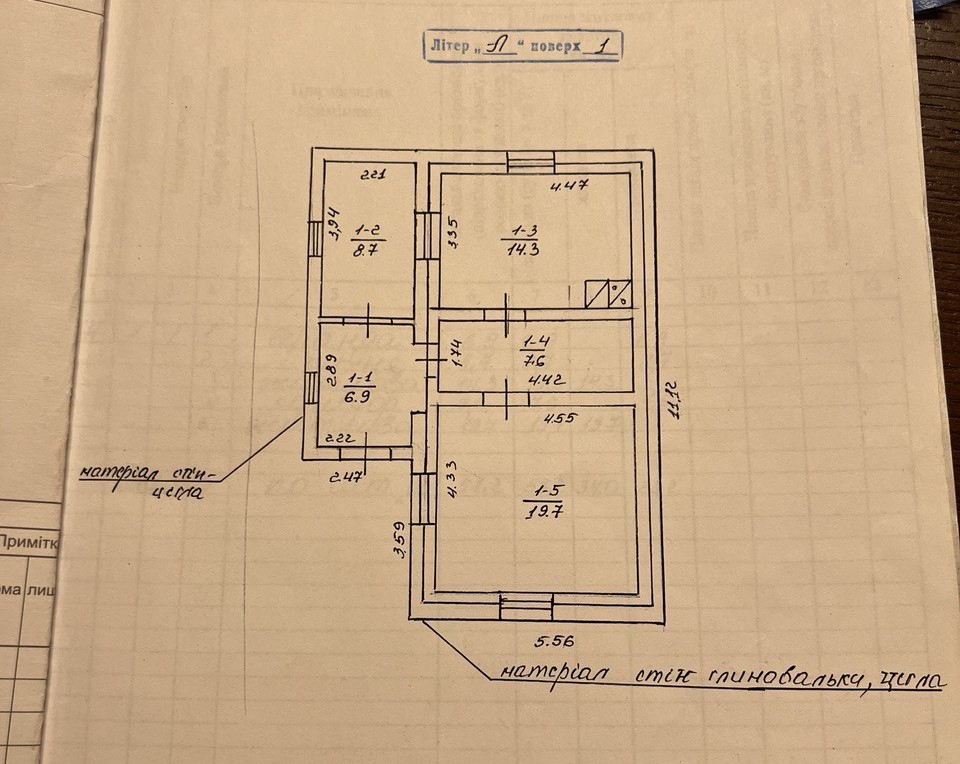 Літер „А“ поверх 1
2.21
4.47
3,94
1-2
8.7
3.35
1-3
14.3
2.89
1-1
6.9
1.74
1-4
7.6
4.42
2.22
2.47
4.55
11,12
матеріал стін-
цегла
4.33
1-5
19.7
3,59
5.56
матеріал стін глиновальки, цегла
Приміт
ма
лиш